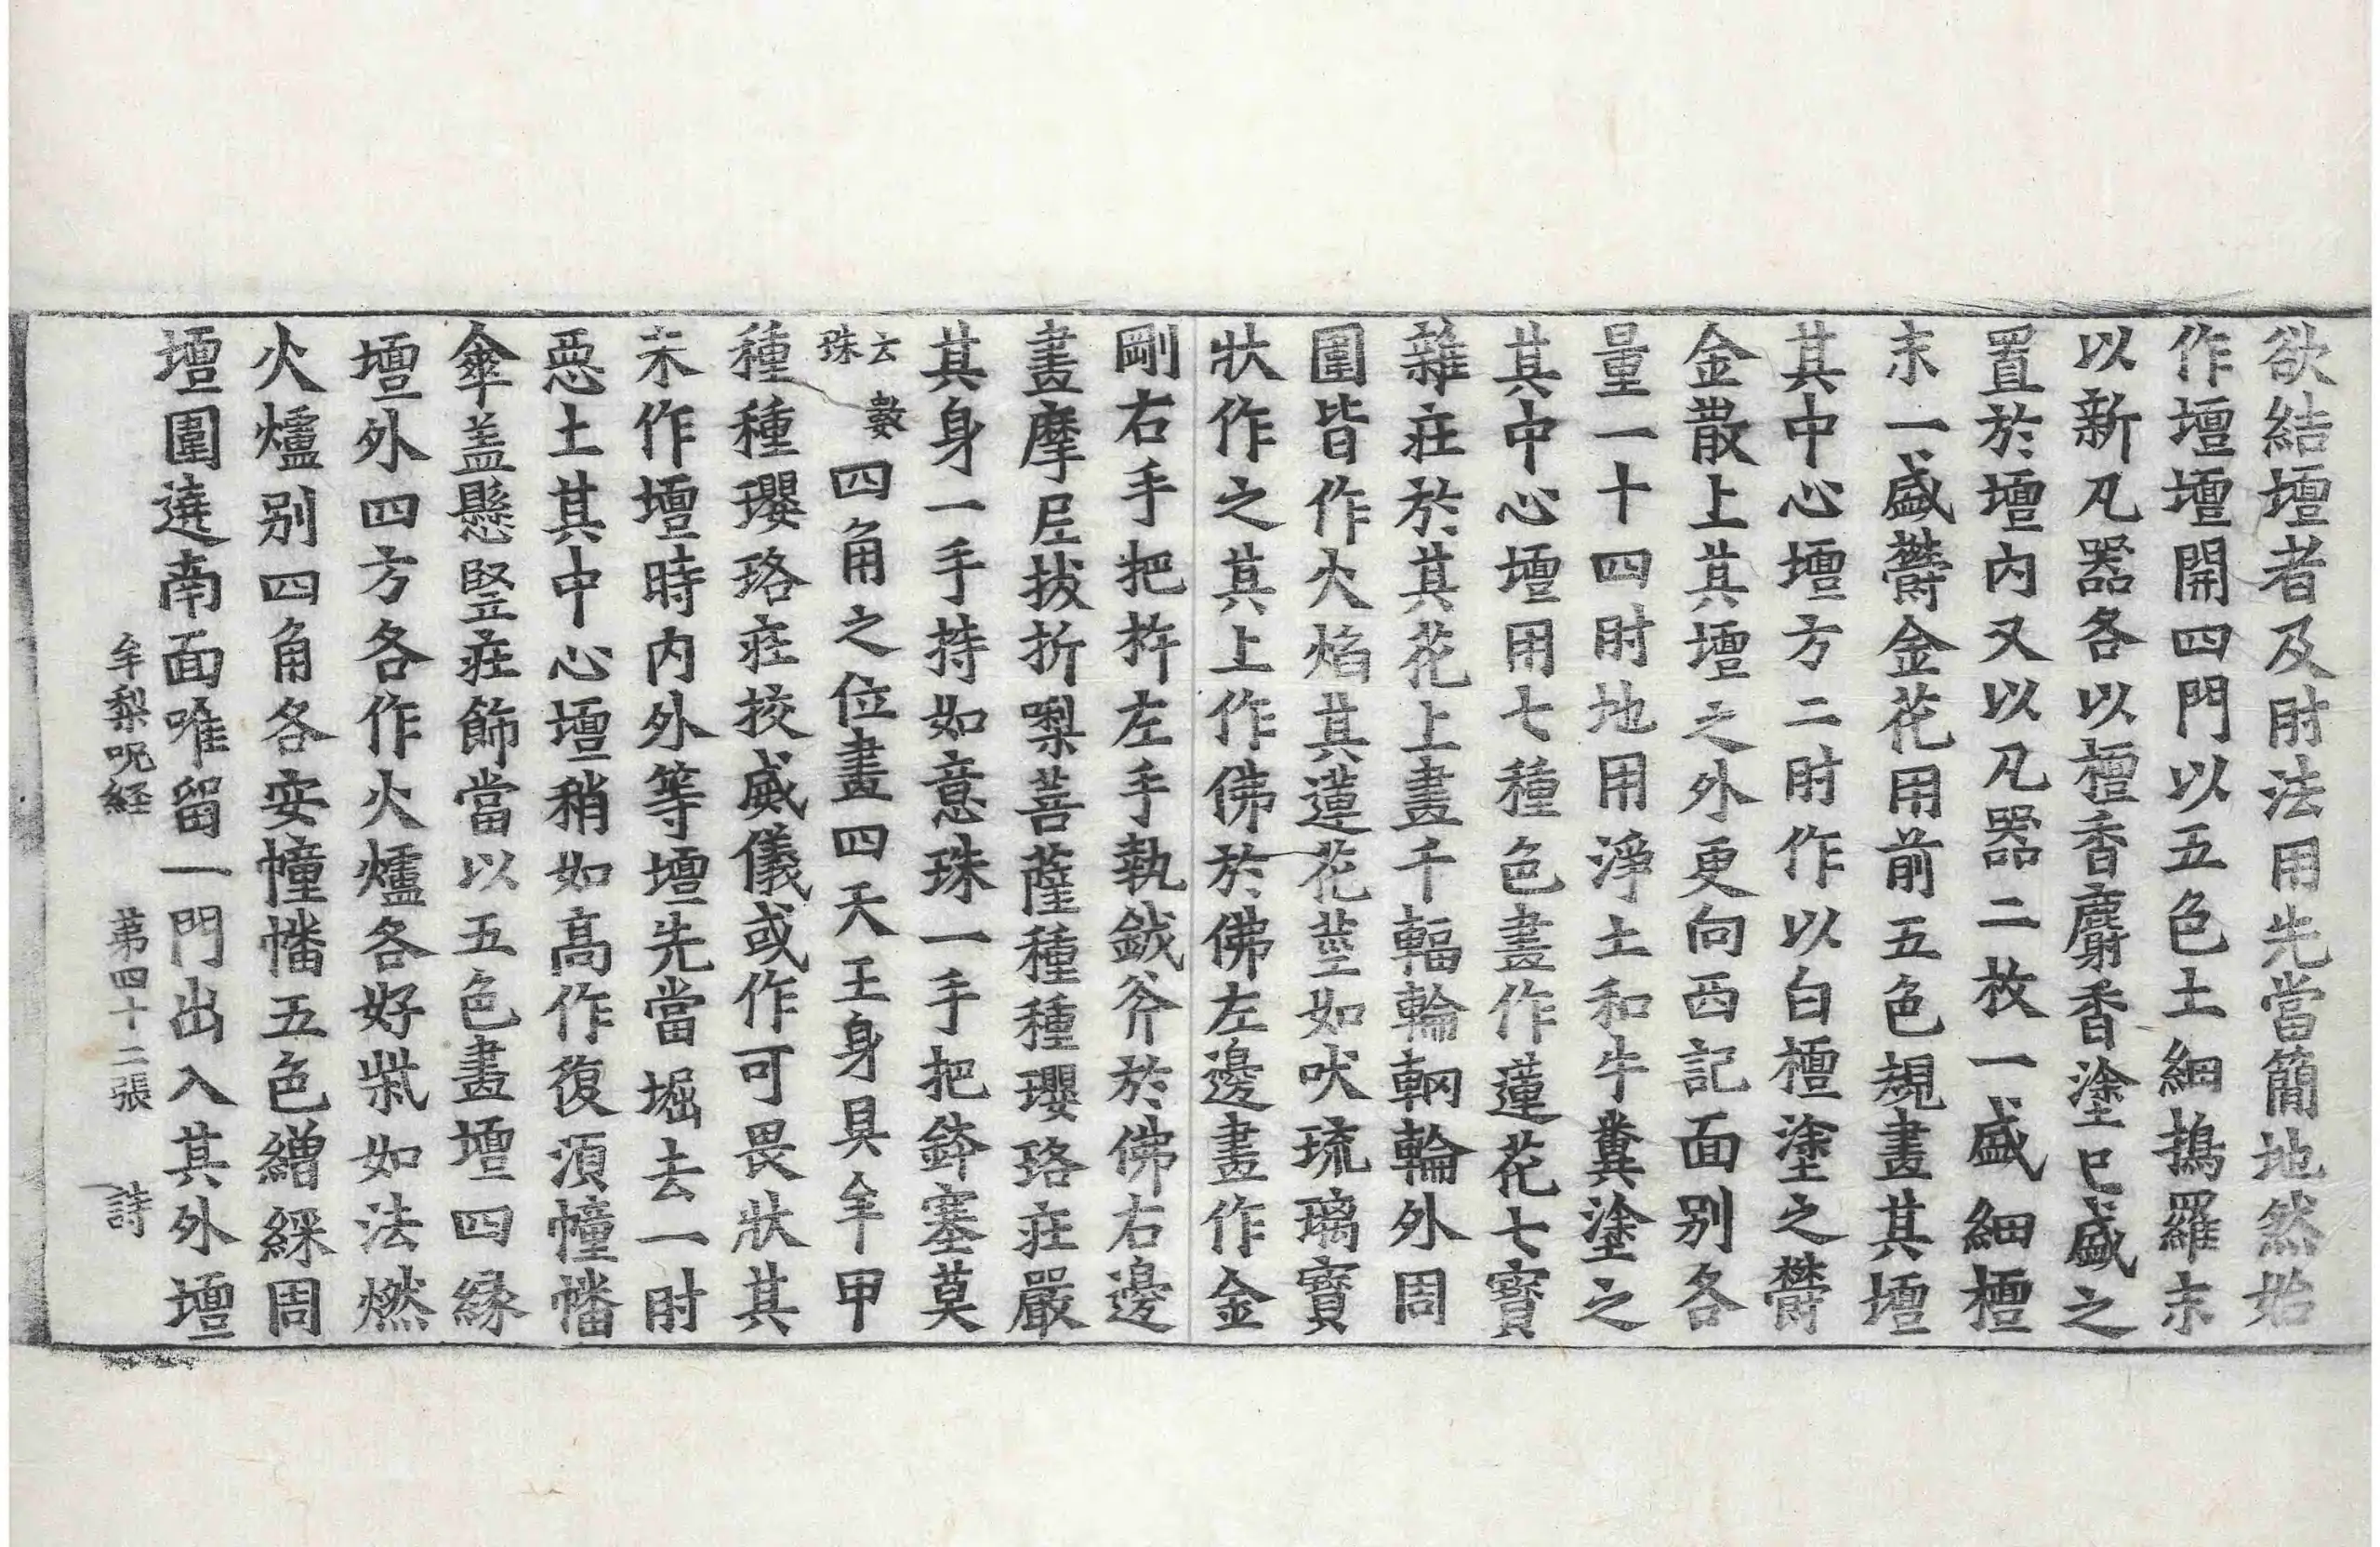 欲結壇者及肘法用先當簡地然始
作壇壇開四門以五色土細擣羅末
以新凡器各以檀香麝香塗已盛之
置於壇内又以凡器二枚一盛細檀
末一盛欝金花用前五色規畫其壇
其中心壇方二肘作以白檀塗之欝
金散上其壇之外更向西記面别各
量一十四肘地用淨土和牛糞塗之
其中心壇用七種色畫作蓮花七寳
雜莊於其花上畫千輻輪輞輪外周
圍皆作火焰其蓮花莖如吠琉璃寳
狀作之其上作佛於佛左邊畫作金
剛右手把杵左手執鉞斧於佛右邊
畫摩尼拔折㗚菩薩種種瓔珞莊嚴
其身一手持如意珠一手把鉾塞莫
云數珠四角之位畫四天王身具牟甲
種種瓔珞莊挍威儀或作可畏狀其
未作壇時内外等壇先當堀去一肘
惡土其中心壇稍如高作復湏幢幡
傘盖懸竪莊飾當以五色畫壇四縁
壇外四方各作火爐各好柴如法燃
火爐别四角各安幢幡五色繒綵周
壇圍遶南面唯留一門出入其外壇
牟梨呪経 苐四十二張 詩